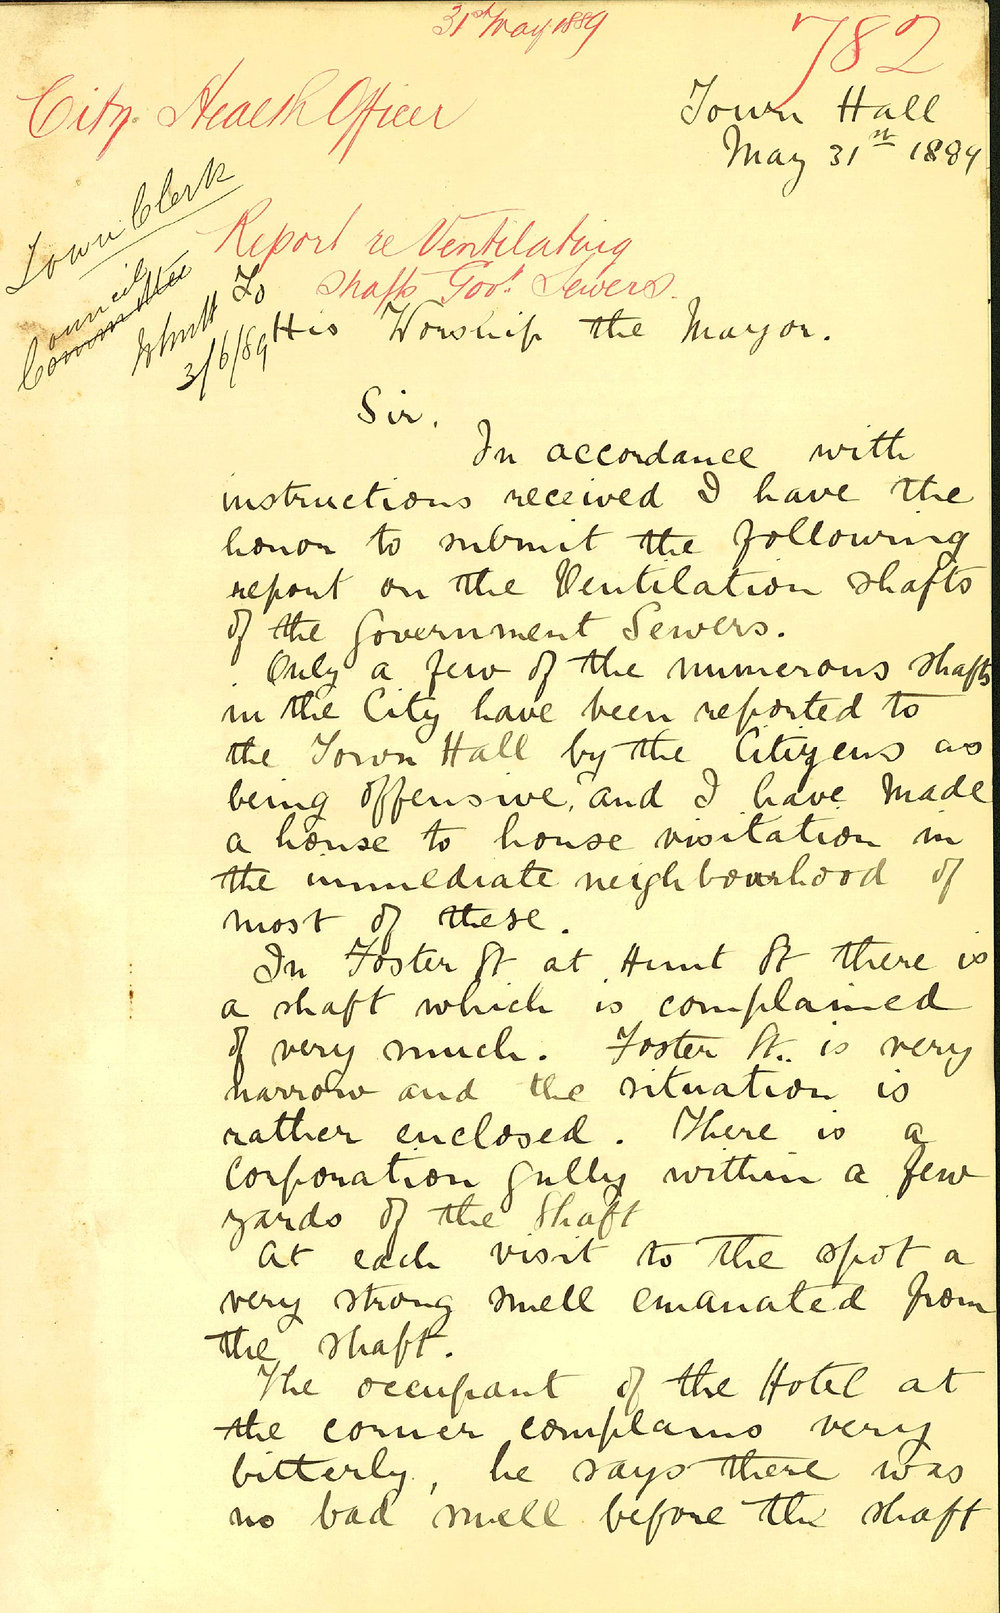 31st May 1889
782
City Health Officer
Town Hall
May 31st 1889
Town Clerk
Report re Ventilating
shafts Govt Sewers.
Council
Committee
To
3/6/89
His Worship the Mayor.
Sir,
In accordance with
instructions received I have the
honor to submit the following
report on the Ventilation shafts
of the Government Sewers.
Only a few of the numerous shafts
in the City have been reported to
the Town Hall by the Citizens as
being offensive, and I have made
a house to house visitation in
the immediate neighbourhood of
most of these.
In Foster St at Hunt St there is
a shaft which is complained
of very much. Foster St. is very
narrow and the situation is
rather enclosed. There is a
Corporation gully within a few
yards of the Shaft
At each visit to the spot a
very strong smell emanated from
the shaft.
The occupant of the Hotel at
the corner complains very
bitterly, he says there was
no bad smell before the shaft